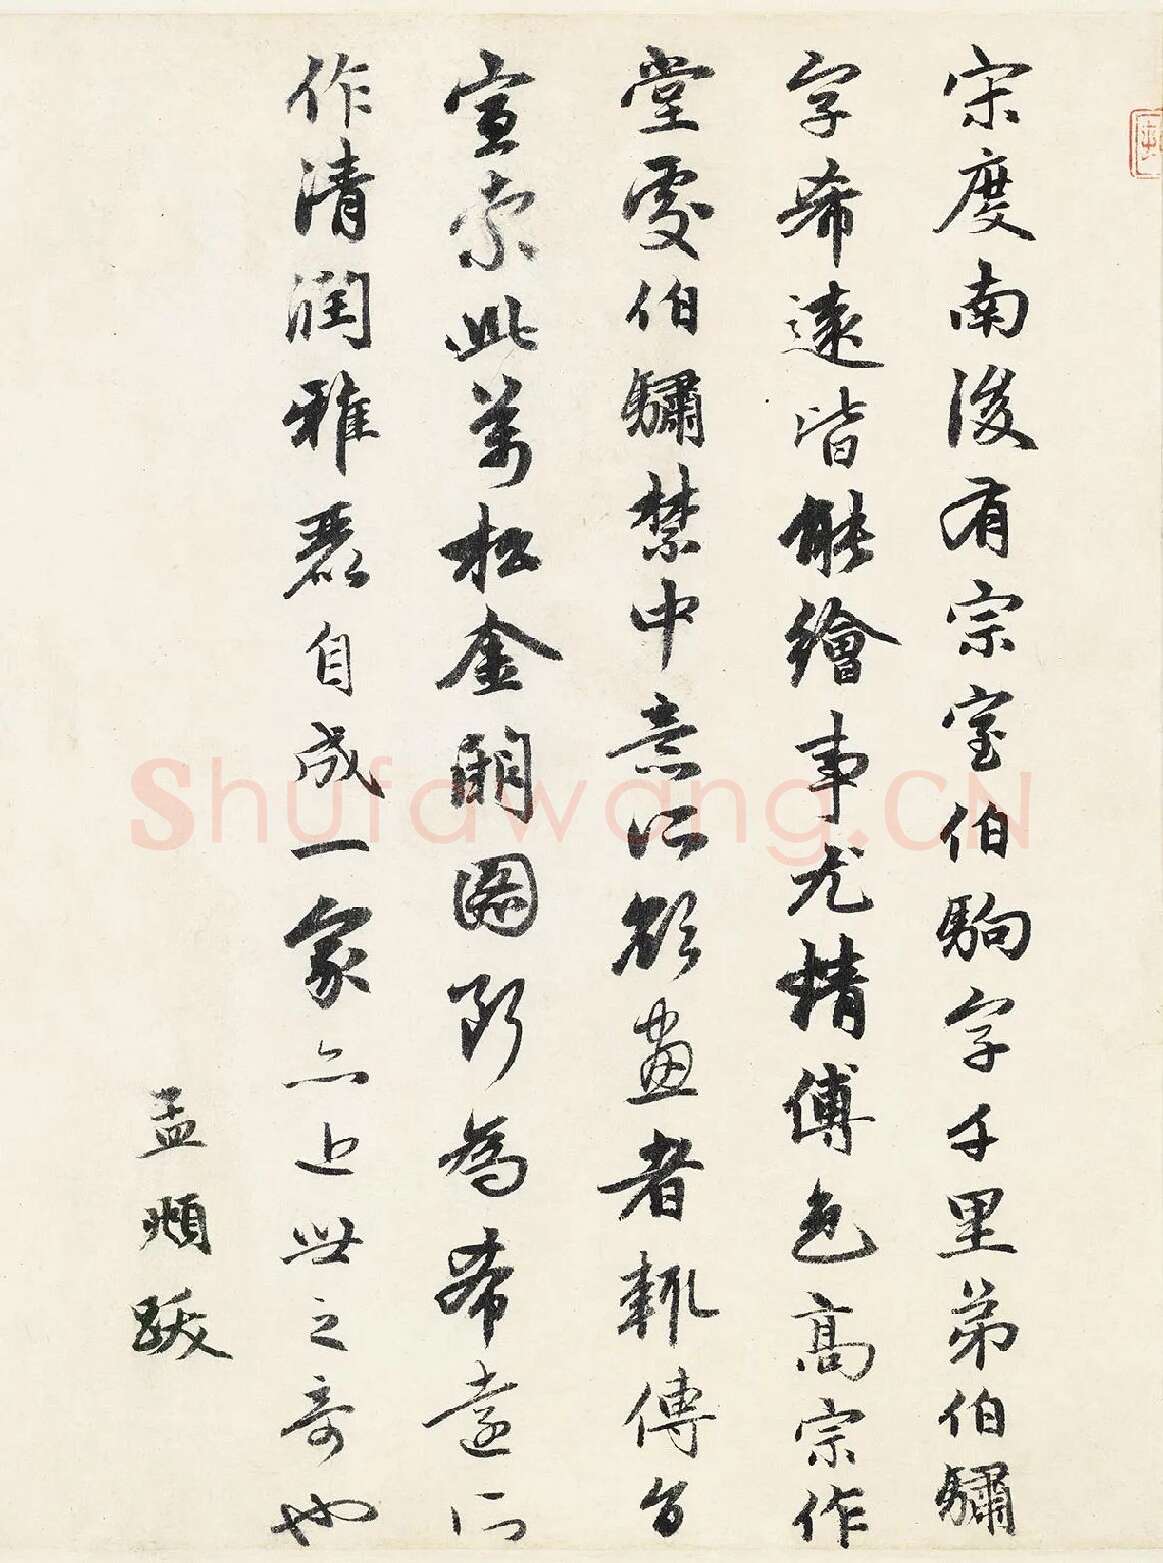 宋度南後有宗室伯駒字千里弟伯驌
字希遠皆能繪事尤精傅色高宗作
堂處伯驌禁中意所欲畫者輒傳旨
宣索此萬松金闕圖斷為希遠所
作清潤雅麗自成一家亦近世之奇也
孟頫跋
Shufawang.CN